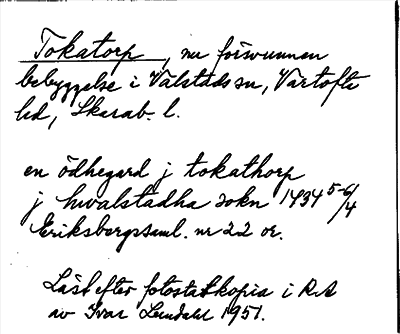 Tokatorp, nu försvunnen
bebyggelse i Valstads sn, Vartofta
hd, Skarab. l.
en ödhegard j tokathorp
j hwalstadha sokn 1434 5-6/4
Eriksbergssaml. nr 22 or.
Läst efter fotostatkopia i RA
av Ivar Lundahl 1951.